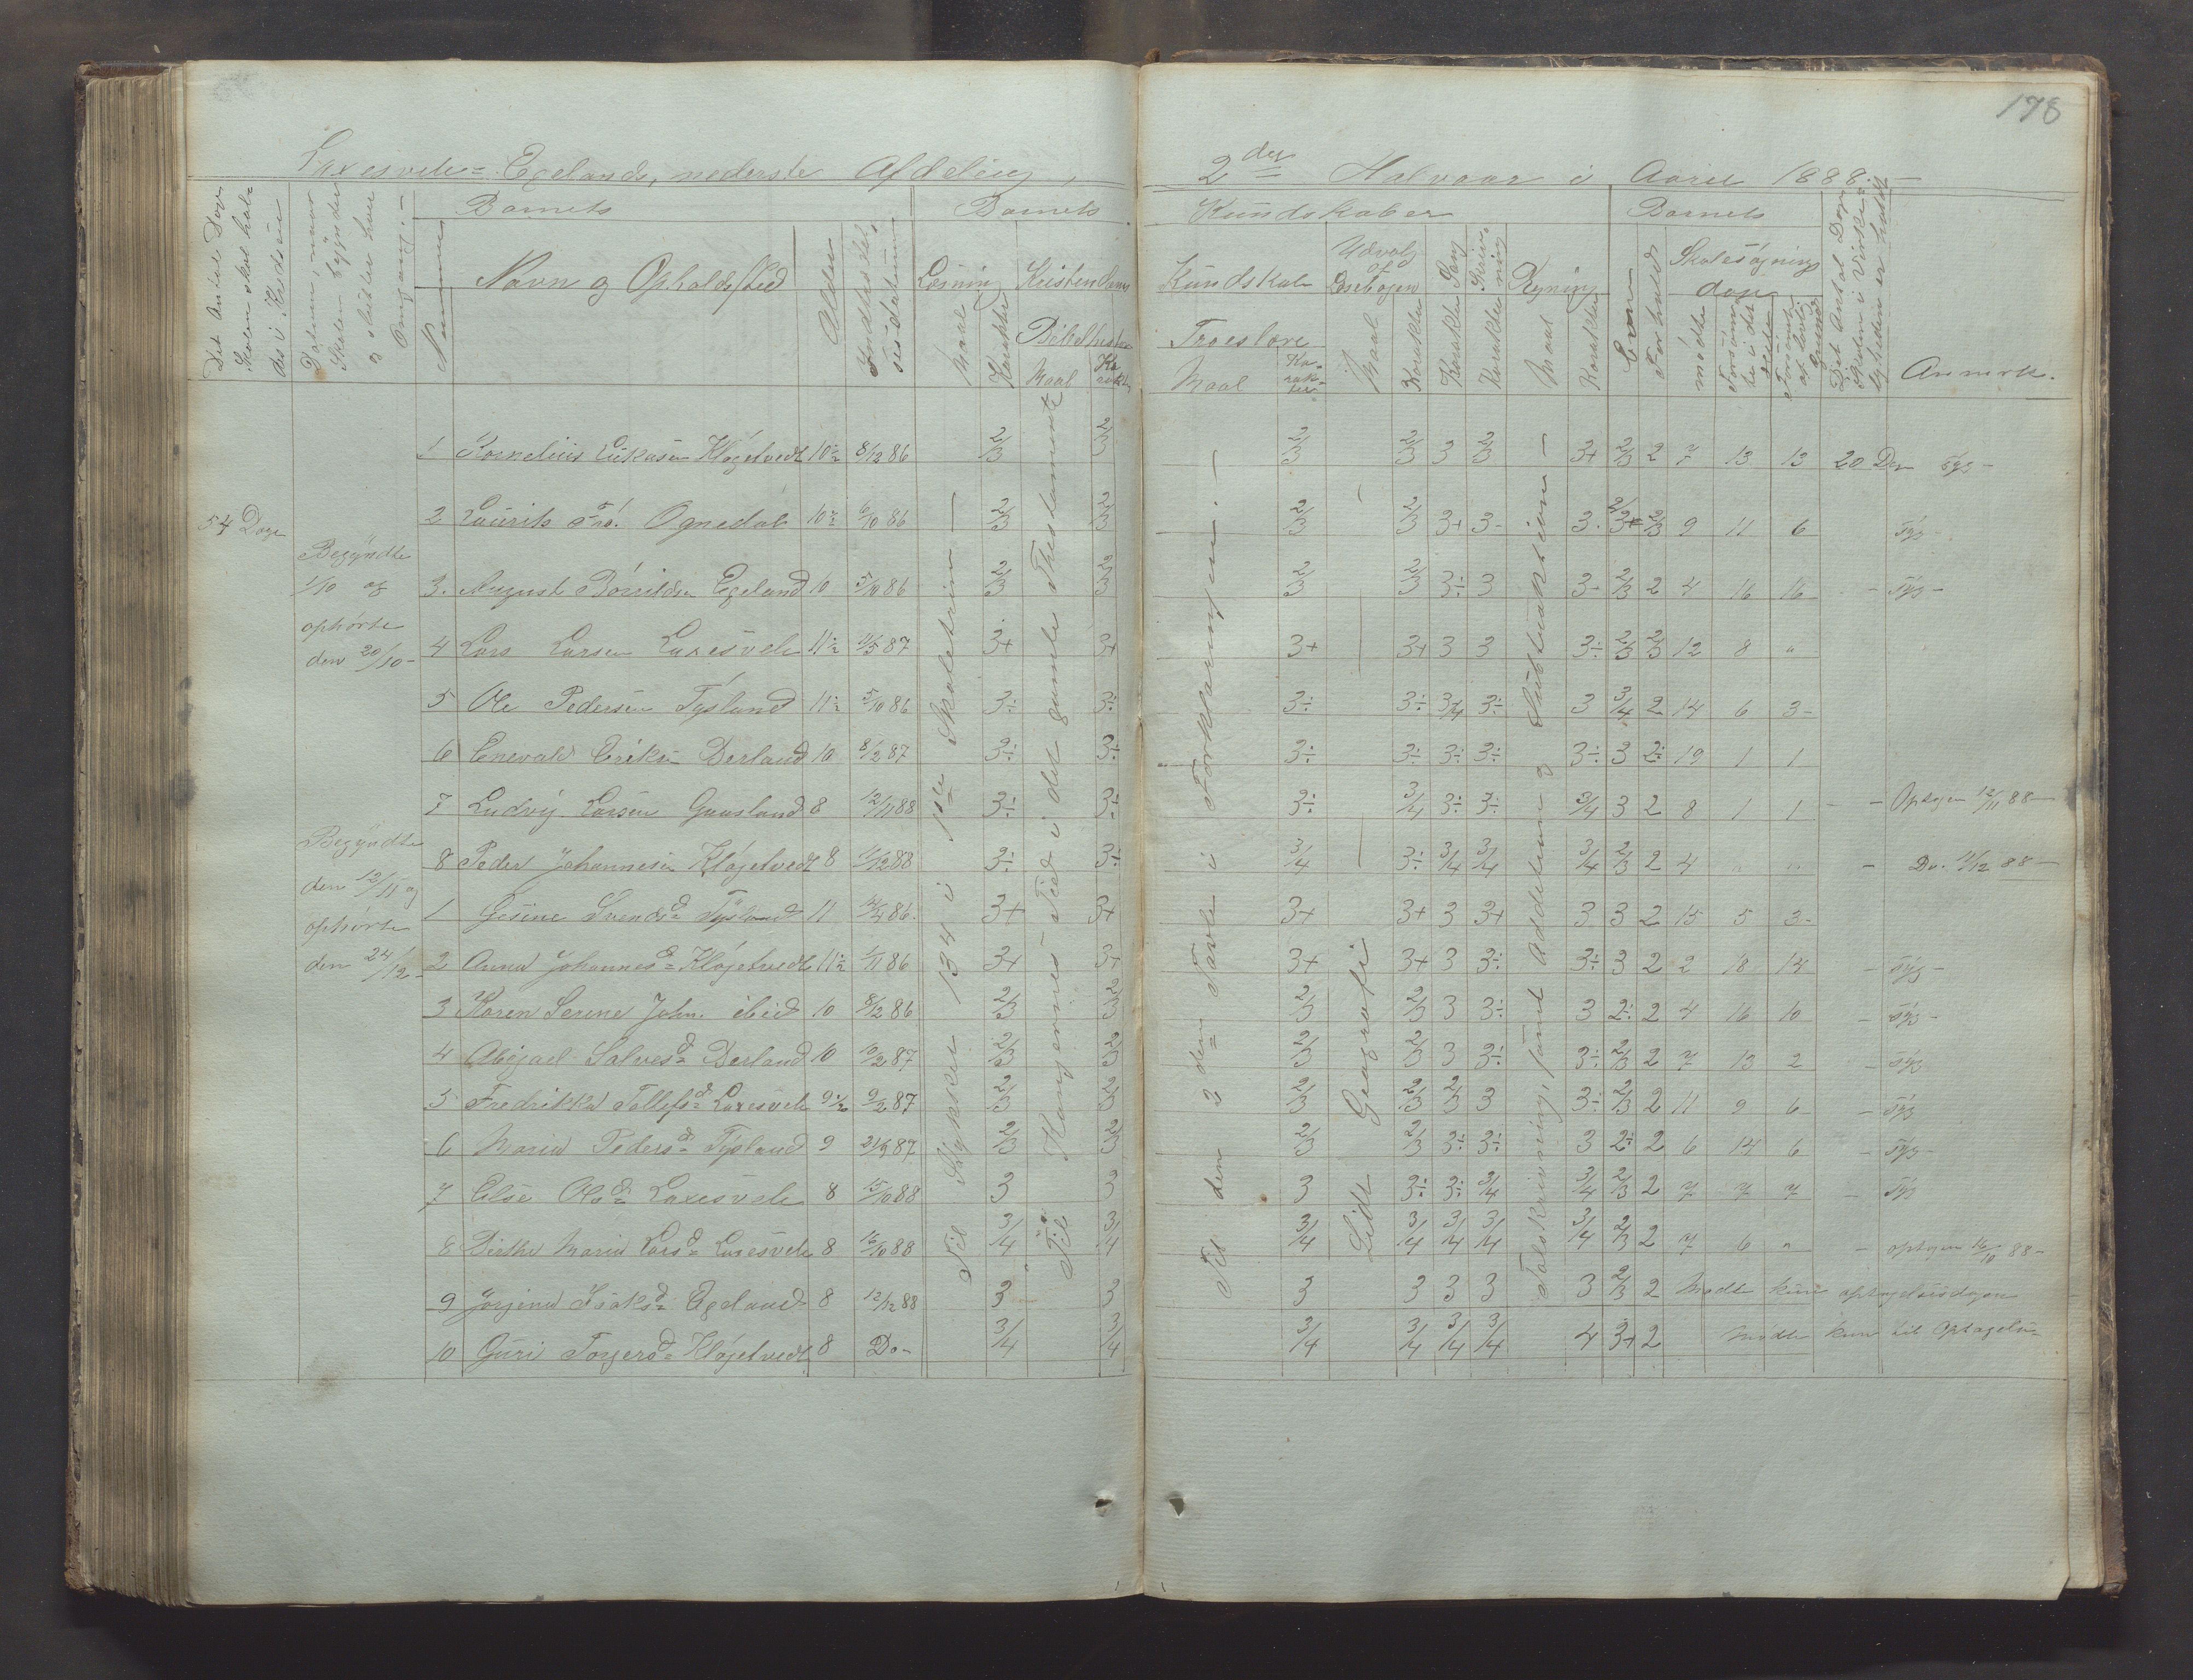 178
Laxesvele= Egelands, nederste Afdeling, 2den Halvaar i Aaret 1888.-
Det Antal Dage Skolen skal holdes i Kredsen
Datum, naar Skolen begynder og slutter hver Omgang.-
Barnets Barnets Kundskaber Barnets
Nummer Navn og Opholdssted Alder Indtrædelsesdatum Læsning Kristendoms Kundskab Udvalg af Læsebogen Sang Skrivning Regning Evne Forhold Skolesøgningsdage
Det Antal Dage Skolen i Virkeligheden er holdt
Anmærk.
Maal Karakter Bibelhistorie Troeslære Maal Karakter Karakter Karakter Maal Karakter mødte Forsømte i det Hele Forsømte af lovlig Grund
Maal Karakter Maal Karakter
54 Dage
Begyndte
1/10 og
ophørte
den 20/10-
Begyndte
den 12/11 og
ophørte
den 24/12-
1 Kornelius Lukasen Kløgetvedt 10½ 8/12 86 2/3 2/3 2/3 2/3 3 2/3 3+ 2/3 2 7 13 13 20 Dage Syg-
2 Laurits Ognedal 10½ 6/10 86 2/3 2/3 2/3 2/3 3+ 3- 3. 2/3+ 2/3 9 11 6 Syg-
3. August Børrildsen Egeland 10 5/10 86 2/3 2/3 2/3 2/3 3÷ 3 3- 2/3 2 4 16 16 - Syg-
4 Lars Larsen Laxesvele 11½ 11/5 87 3+ 3+ 3+ 3+ 3 3 3÷ 2/3 2/3 12 8 "
5 Ole Pedersen Tysland 11½ 5/10 86 3÷ 3÷ 3÷ 3÷ 3/4 3÷ 3 3/4 2 14 6 3-
6 Enevald Eriksen Derland 10 8/2 87 3÷ 3÷ 3÷ 3÷ 3÷ 3÷ 3÷ 3 2÷ 19 1 1
7 Ludvig Larsen Gaasland 8 12/11 88 3÷ 3÷ 3÷ 3/4 3÷ 3÷ 3/4 3 2 8 1 1 - - Optagen 12/11 88-
8 Peder Johannesen Kløgetvedt 8 11/12 88 3÷ 3÷ 3/4 3÷ 3/4 3/4 3/4 2/3 2 4 " " - Do. 11/12 88-
1 Gesine Svendsd= Tysland 11 14/4 86. 3+ 3+ 3+ 3+ 3 3+ 3 3 2 15 5 3-
2 Anna Johannesd= Kløgetvedt 11½ 1/11 86 3+ 3+ 3+ 3+ 3 3÷ 3÷ 3 2 2 18 14 - Syg-
3 Karen Serine John. ibid 10 8/12 86 2/3 2/3 2/3 2/3 3 3÷ 3 2÷ 2 4 16 10 - Syg-
4 Abigael Salvesd= Derland 10 10/2 87 2/3 2/3 2/3 2/3 3 3÷ 3÷ 2/3 2 7 13 2 - Syg
5 Fredrikka Tollefsd= Laxesvele 9½ 9/2 87 2/3 2/3 2/3 2/3 2/3 3 3÷ 2/3 2 11 9 6 - Syg
6 Maria Pedersd= Tysland 9 21/9 87 2/3 2/3 2/3 2/3 3÷ 3÷ 3 2÷ 2 6 14 6 - Syg-
7 Else Olsd= Laxesvele 8 15/10 88 3 3 3 3÷ 3÷ 3/4 3/4 2/3 2 7 7 7 - Syg
8 Birthe Maria Larsd= Laxesvele 8 16/10 88 3/4 3/4 3/4 3/4 3/4 3/4 3/4 2/3 2 7 6 " - optagen 16/10 88-
9 Jorgina Isaksd= Egeland 8 12/12 88 3 3 3 3 3 3 3 2/3 2 Mødte kun optagelsesdagen
10 Guri Torgersd= Kløgetvedt 8 Do- 3/4 3/4 3/4 3/4 3/4 3/4 4 3+ 2 mødte kun til Optagelse-
Til Stykket 134 i 1ste Skoletrin -
Til Kongernes Tid i det gamle Thestamente
Til den 2den Tavle i Forklaringen. -
Lidt Geografi
Talskrivning, samt Addition og Subtraktion -